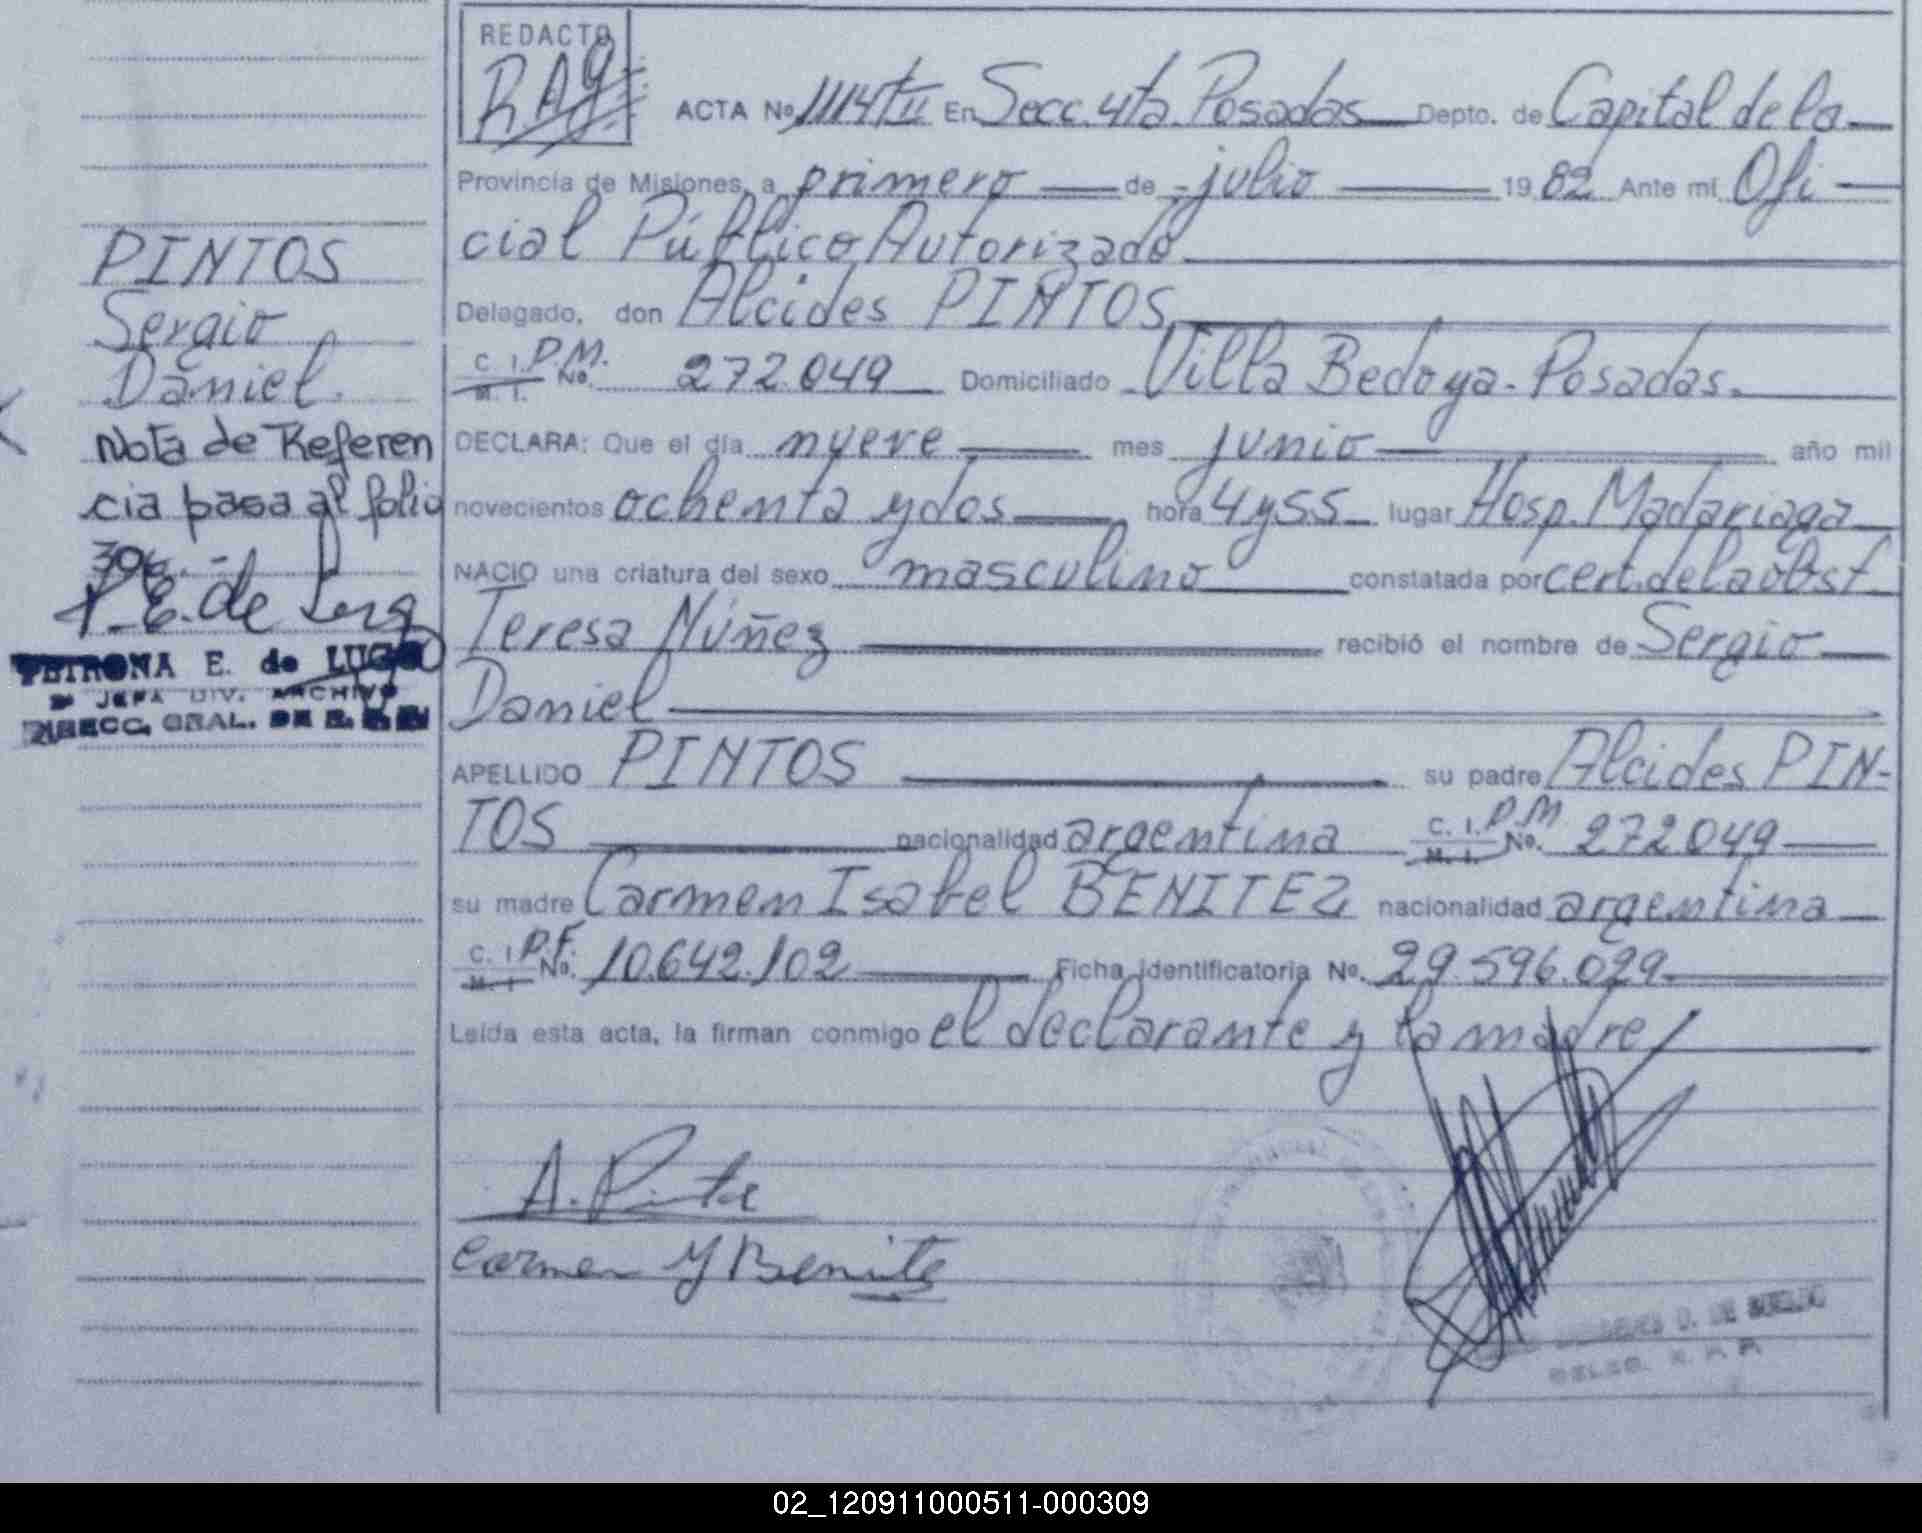 REDACTO
RAG
ACTA No 1114 TII En Secc. 4ta. Posadas Depto. de Capital de la
Provincia de Misiones, a primero de julio 19 82 Ante mí Ofi
cial Público Autorizado
Delegado, don Alcides PINTOS
C. I. P.M.
M. I. No. 272.049 Domiciliado Villa Bedoya - Posadas.
DECLARA: Que el día nueve mes junio año mil
novecientos ochenta y dos hora 4 y 55 lugar Hosp. Madariaga
NACIO una criatura del sexo masculino constatada por cert. de la obst.
Teresa Núñez recibió el nombre de Sergio
Daniel
APELLIDO PINTOS su padre Alcides PIN-
TOS nacionalidad argentina C. I. P.M
M. I. No. 272.049
su madre Carmen Isabel BENITEZ nacionalidad argentina
C. I. P.F.
M. I. No. 10.642.102 Ficha identificatoria No. 29.596.029
Leída esta acta, la firman conmigo el declarante y la madre
A. Pinto
Carmen Y Benite
PINTOS
Sergio
Daniel.
Nota de Referen
cia pasa al folio
396. -
P. E. de Lugo
PETRONA E. de LUGO
JEFA DIV. ARCHIVO
DIRECC. GRAL. DE
D. DE
02_120911000511-000309